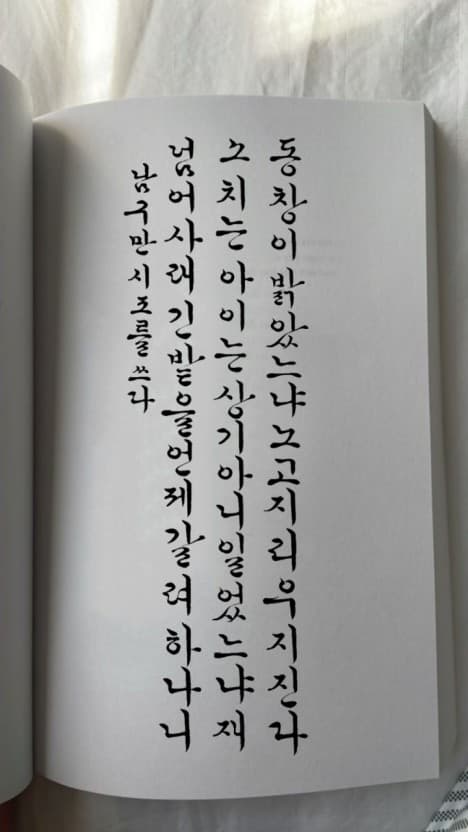 동창이 밝았느냐 노고지리 우지진다
소 치는 아이는 상기 아니 일었느냐 재
넘어 사래 긴 밭을 언제 갈려 하나니
남구만 시조를 쓰다